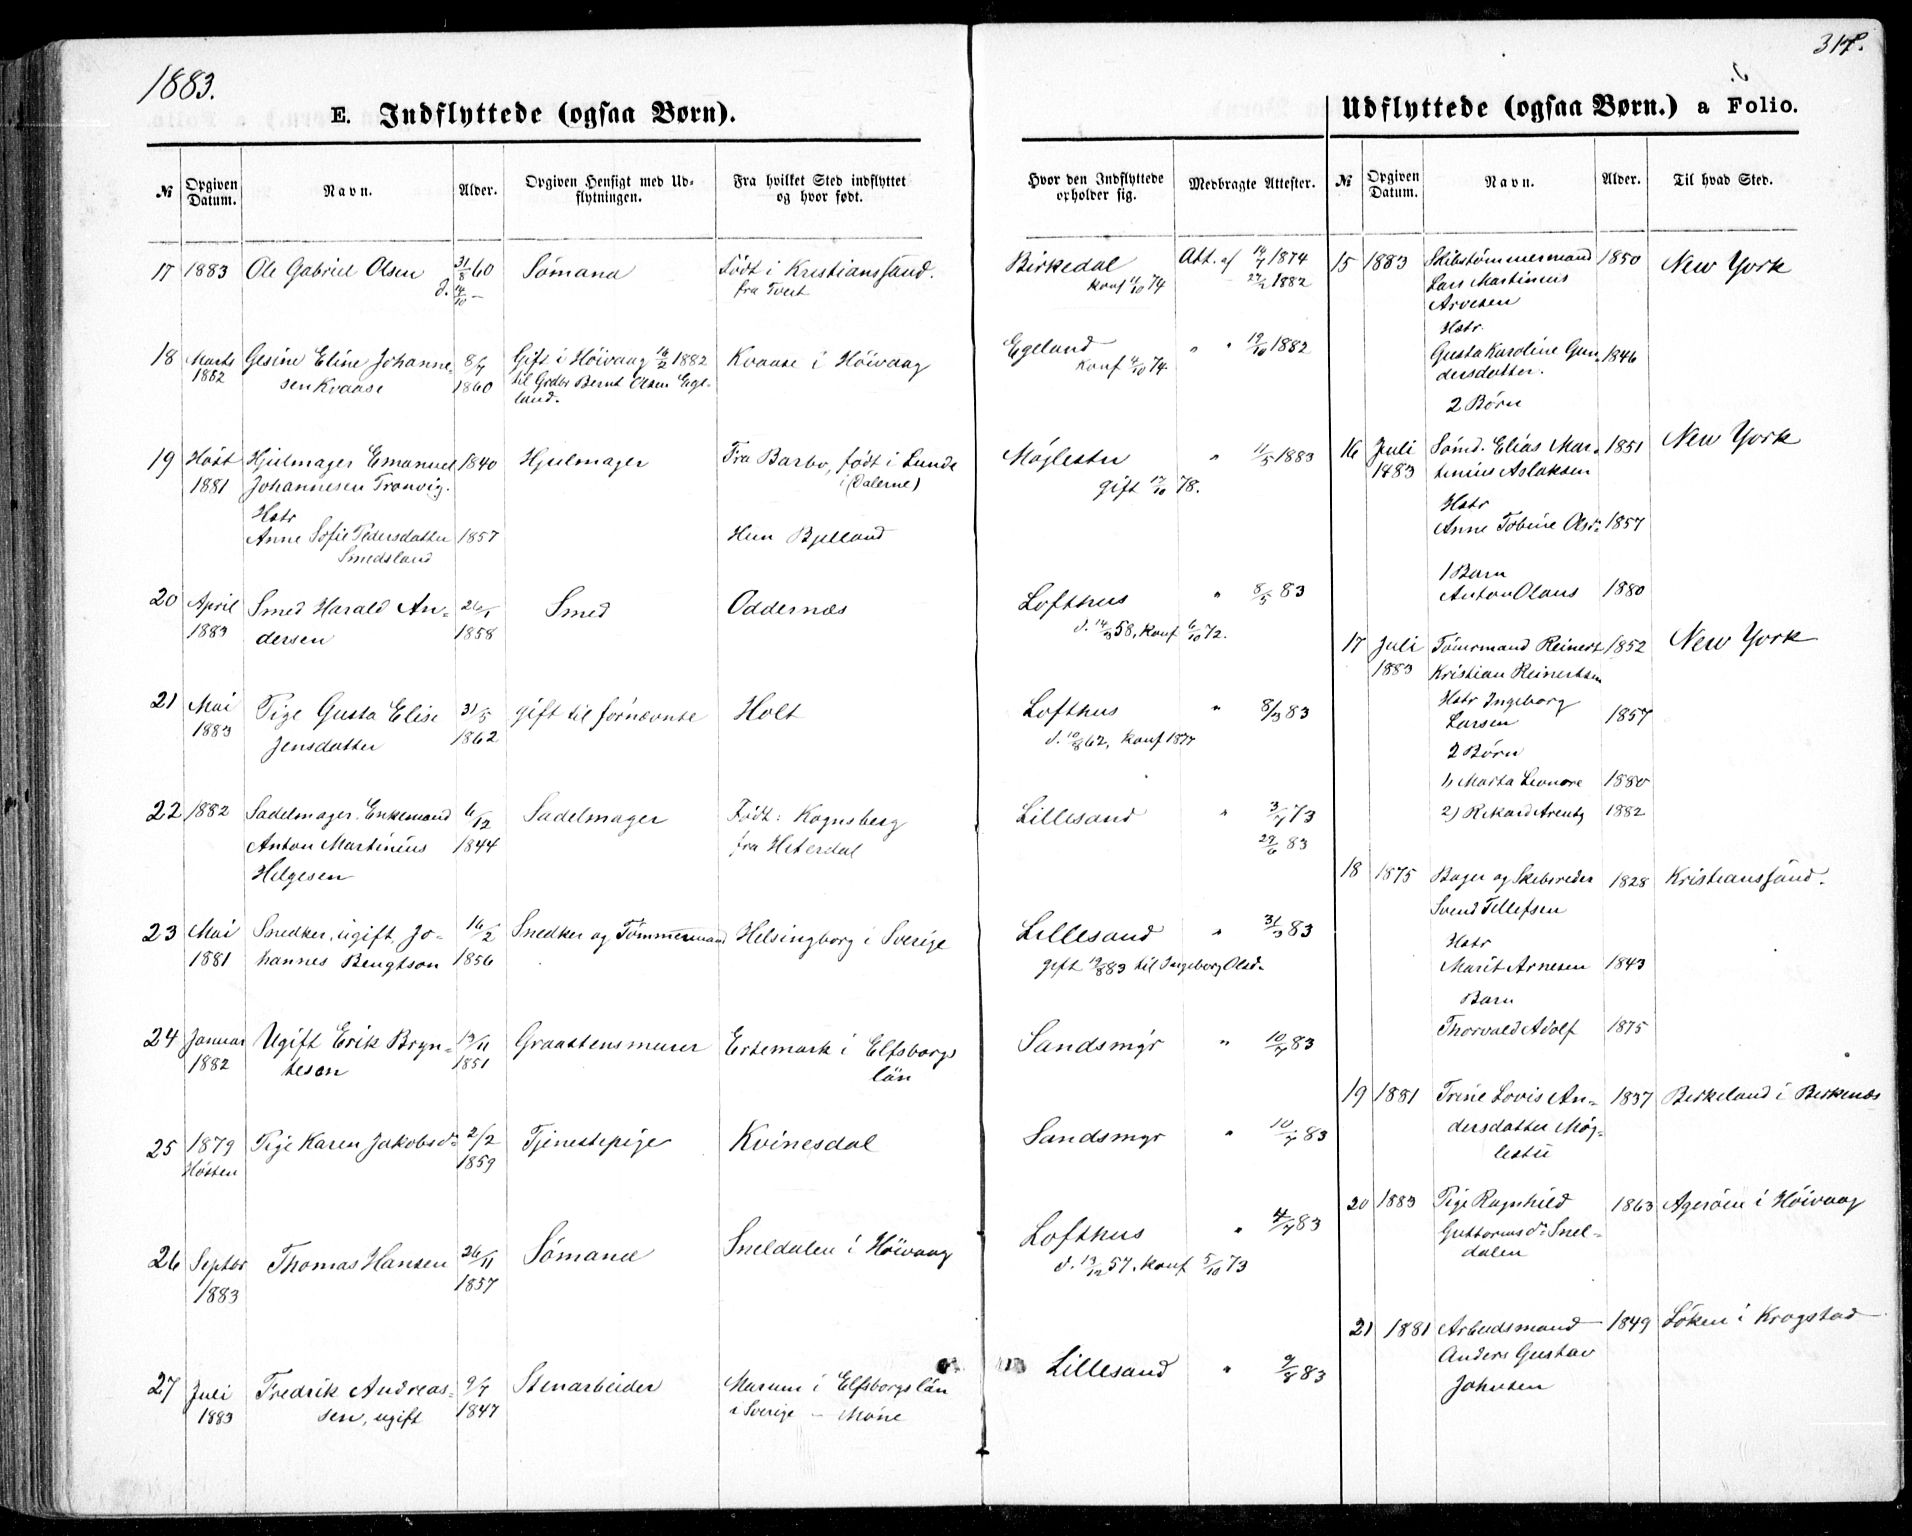 1883.
317.
E. Indflyttede (ogsaa Børn).
Udflyttede (ogsaa Børn.) a Folio.
№ Opgiven Datum. Navn. Alder. Opgiven Hensigt med Udflytningen. Fra hvilket Sted indflyttet og hvor født. Hvor den Indflyttede opholder sig. Medbragte Attester.
17 1883 Ole Gabriel Olsen 31/8 60 Sømand Født i Kristianssand. Birkedal Att. af 14/7 1874
d. 14/10 — fra Tveit konf 11/10 74 27/2 1882
18 Marts Gesine Eline Johanne- 8/7 Gift i Höivaag 16/2 1882 Kvaase i Höivaag Egeland " " 19/10 1882
1882 sen Kvaase 1860 til Grdbr Bernt Olsen Ege- konf 4/10 74
land.
19 Høst Hjulmager Emanuel 1840 Hjulmager Fra Barbo, født i Lunde Møglestu " 11/5 1883
1881 Johannesen Tronvig. i (Dalerne) gift 17/10 78.
Hstr
Anne Sofie Pedersdatter 1857 Hun Bjelland
Smedsland
20 April Smed Harald An- 26/1 Smed Oddernæs Lofthus " 8/5 83
1883 dersen 1858 d. 14/3 58, konf 6/10 72.
21 Mai Pige Gusta Elise 31/5 gift til fornævnte Holt Lofthus " 8/3 83
1883 Jensdatter 1862 d. 10/8 62, konf 1877
22 1882 Sadelmager. Enkemand 6/12 Sadelmager Født: Kognsberg Lillesand " 3/7 73
Anton Martinius 1844 fra Hiterdal 29/6 83
Helgesen
23 Mai Snedker, ugift, Jo- 16/2 Snedker og Tömmermand Helsingborg i Sverige Lillesand " 31/3 83
1881 hannes Bengtson 1856 gift 19/8 83 til Ingeborg Olsd.
24 Januar Ugift Erik Bryn- 13/11 Graastensmurer Ertemark i Elfsborgs Sandsmyr " 10/7 83
1882 tesen 1851 län
25 1879 Pige Karen Jakobsd. 2/2 Tjenestepige Kvinesdal Sandsmyr " 10/7 83
Høsten 1859
26 Septbr Thomas Hansen 26/11 Sømand Sneldalen i Höivaag Lofthus " 4/7 83
1883 1857 d. 13/12 57, konf 5/10 73
27 Juli Fredrik Andreas- 9/7 Stenarbeider Marum i Elfsborgs län Lillesand " 9/8 83
1883 sen, ugift 1847 i Sverige — Mone
№ Opgiven Datum. Navn. Alder. Til hvad Sted.
15 1883 Skibstømmermand 1850 New York
Lars Martinius
Arvesen
Hstr.
Gusta Karoline Gun- 1846
dersdatter.
2 Børn
16 Juli Sømd. Elias Mar- 1851 New York
1883 tinius Aslaksen
Hstr
Anne Tobine Olsd. 1857
1 Barn
Anton Olaus 1880
17 Juli Tømrmand Reinert 1852 New York
1883 Kristian Reinertsen
Hstr Ingeborg
Larsen 1857
2 Børn
1, Marta Leonore 1880
2) Rikard Arentz 1882
18 1875 Bager og Skibsreder 1828 Kristianssand.
Svend Tellefsen
Hstr
Marit Arnesen 1843
Barn
Thorvald Adolf 1875
19 1881 Trine Lovis An- 1837 Birkeland i Birkenæs
dersdatter Møg-
lestu
20 1883 Pige Ragnhild 1863 Ageröen i Höivaag
Guttormsd. Snel-
dalen
21 1881 Arbeidsmand 1849 Löken i Krogstad
Anders Gustav
Johnsen